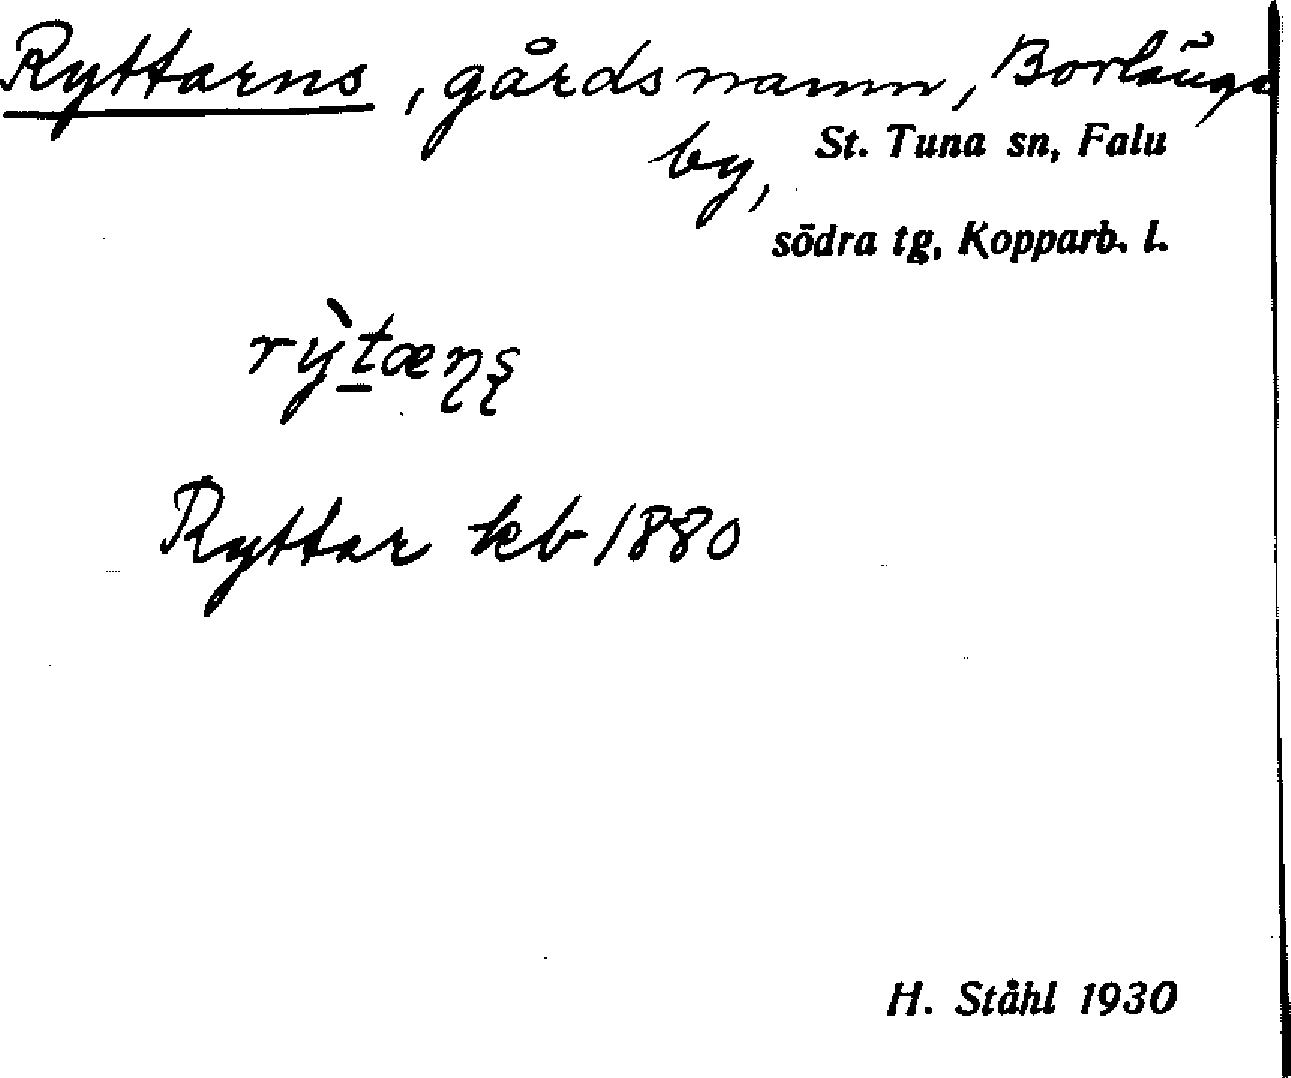 Ryttarns, gårdsnamn, Borlänge
by, St. Tuna sn, Falu
södra tg, Kopparb. l.
rỳt̲æɳʂ
Ryttar kb 1880
H. Ståhl 1930